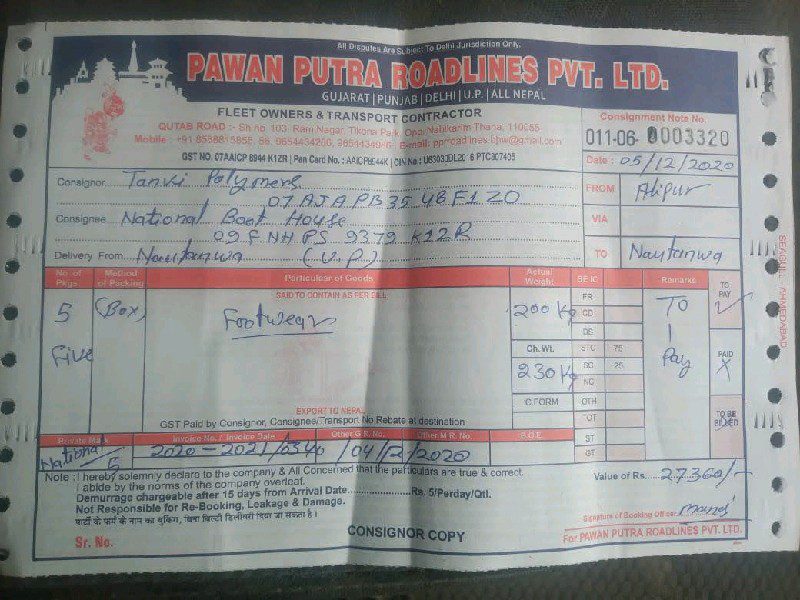 All Disputes Are Subject To Delhi Jurisdiction Only.
PAWAN PUTRA ROADLINES PVT. LTD.
GUJARAT | PUNJAB | DELHI | U.P. | ALL NEPAL
FLEET OWNERS & TRANSPORT CONTRACTOR
QUTAB ROAD :- Sh no 103, Ram Nagar, Tikona Park, Opp. Nabikarim Thana, 110055
Mobile :
Consignment Note No.
011-06- 0003320
Date : 05/12/2020
Consignor Tanvi Polymers
07AJAPB3548F1Z0
Consignee National Boot House
09FNHPS 9379 K1ZR
Delivery From Nautanwa (U.P.)
FROM Alipur
VIA
TO Nautanwa
No. of Pkgs. Method of Packing Particular of Goods Actual Weight Remarks TO PAY ✓
SAID TO CONTAIN AS PER BILL
5 (Box) Footwear 200 Kg FR TO
Five
CD
DS
Ch. Wt.
230 Kg
Pay
PAID X
C.FORM OTH
TOT
ST
TO BE BILLED
EXPORT TO NEPAL
GST Paid by Consignor, Consignee/Transport No Rebate at destination
Private Mark Invoice No. / Invoice Date Other G.R. No. Other M.R. No. B.O.E.
National 5 2020-2021/0340 /04/12/2020
Note : I hereby solemnly declare to the company & All Concerned that the particulars are true & correct.
I abide by the norms of the company overleaf.
Demurrage chargeable after 15 days from Arrival Date Rs. 5/Perday/Qtl.
Not Responsible for Re-Booking, Leakage & Damage.
Value of Rs. 27360/-
Signature of Booking Officer
Sr. No.
CONSIGNOR COPY
For PAWAN PUTRA ROADLINES PVT. LTD.